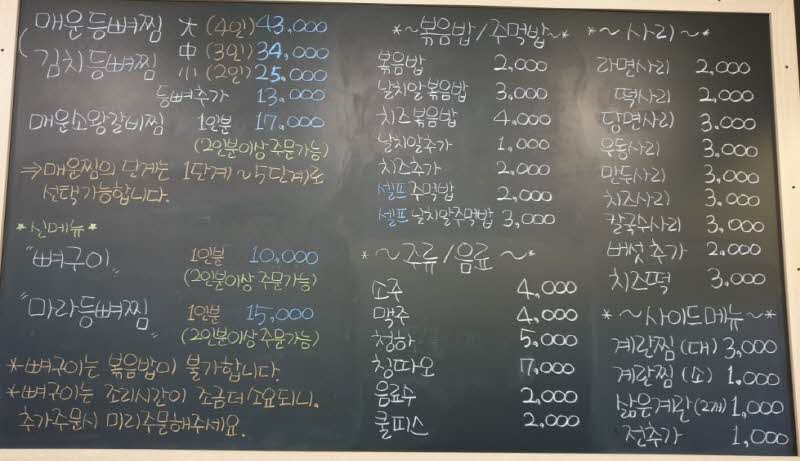 매운등뼈찜 大 (4인) 43,000
김치등뼈찜 中 (3인) 34,000
小 (2인) 25,000
등뼈추가 13,000
매운소왕갈비찜 1인분 17,000
(2인분이상 주문가능)
⇒매운찜의 단계는 1단계~5단계로
선택가능합니다.
*신메뉴*
"뼈구이" 1인분 10,000
(2인분이상 주문가능)
"마라등뼈찜" 1인분 15,000
(2인분이상 주문가능)
*뼈구이는 볶음밥이 불가합니다.
*뼈구이는 조리시간이 조금더소요되니.
추가주문시 미리주문해주세요.
*~볶음밥/주먹밥~*
볶음밥 2,000
날치알볶음밥 3,000
치즈볶음밥 4,000
날치알추가 1,000
치즈추가 2,000
셀프주먹밥 2,000
셀프 날치알주먹밥 3,000
*~주류/음료~*
소주 4,000
맥주 4,000
청하 5,000
칭따오 7,000
음료수 2,000
쿨피스 2,000
*~사리~*
라면사리 2,000
떡사리 2,000
당면사리 3,000
우동사리 3,000
만두사리 3,000
치즈사리 3,000
칼국수사리 3,000
버섯추가 2,000
치즈떡 3,000
*~사이드메뉴~*
계란찜 (대) 3,000
계란찜 (소) 1,000
삶은계란 (2개) 1,000
전추가 1,000